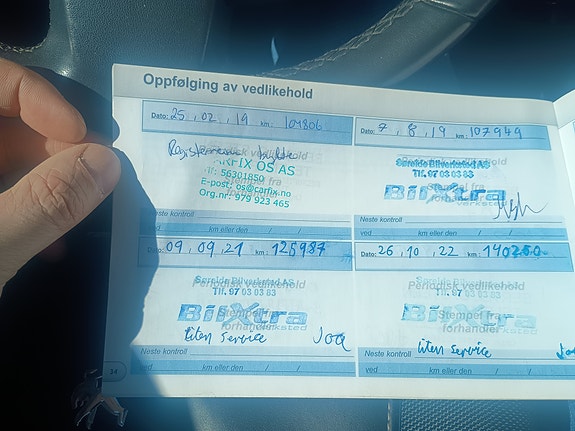 Oppfølging av vedlikehold
Dato: 25 , 02 , 19 km: 104806
CARFIX OS AS
Tlf: 56301850
E-post: os@carfix.no
Org.nr: 979 923 465
Neste kontroll
ved km eller den / /
Dato: 7 , 8 , 19 km: 107949
Særelde Bilverksted AS
Tlf. 97 03 03 83
BilXtra
verksted
Neste kontroll
ved km eller den / /
Dato: 09 , 09 , 21 km: 125987
Særelde Bilverksted AS
Periodisk vedlikehold
Tlf. 97 03 03 83
BilXtra
Stempel fra
forhandler
verksted
liten service
Neste kontroll
ved km eller den / /
Dato: 26 , 10 , 22 km: 140250
Periodisk vedlikehold
Tlf. 97 03 03 83
BilXtra
Stempel fra
forhandler
verksted
liten service
Neste kontroll
ved km eller den / /
34